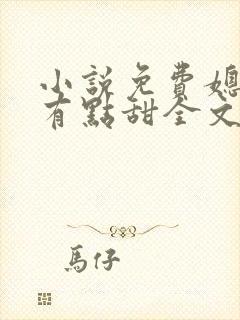 小說免費媳
有點甜全文
馬仔